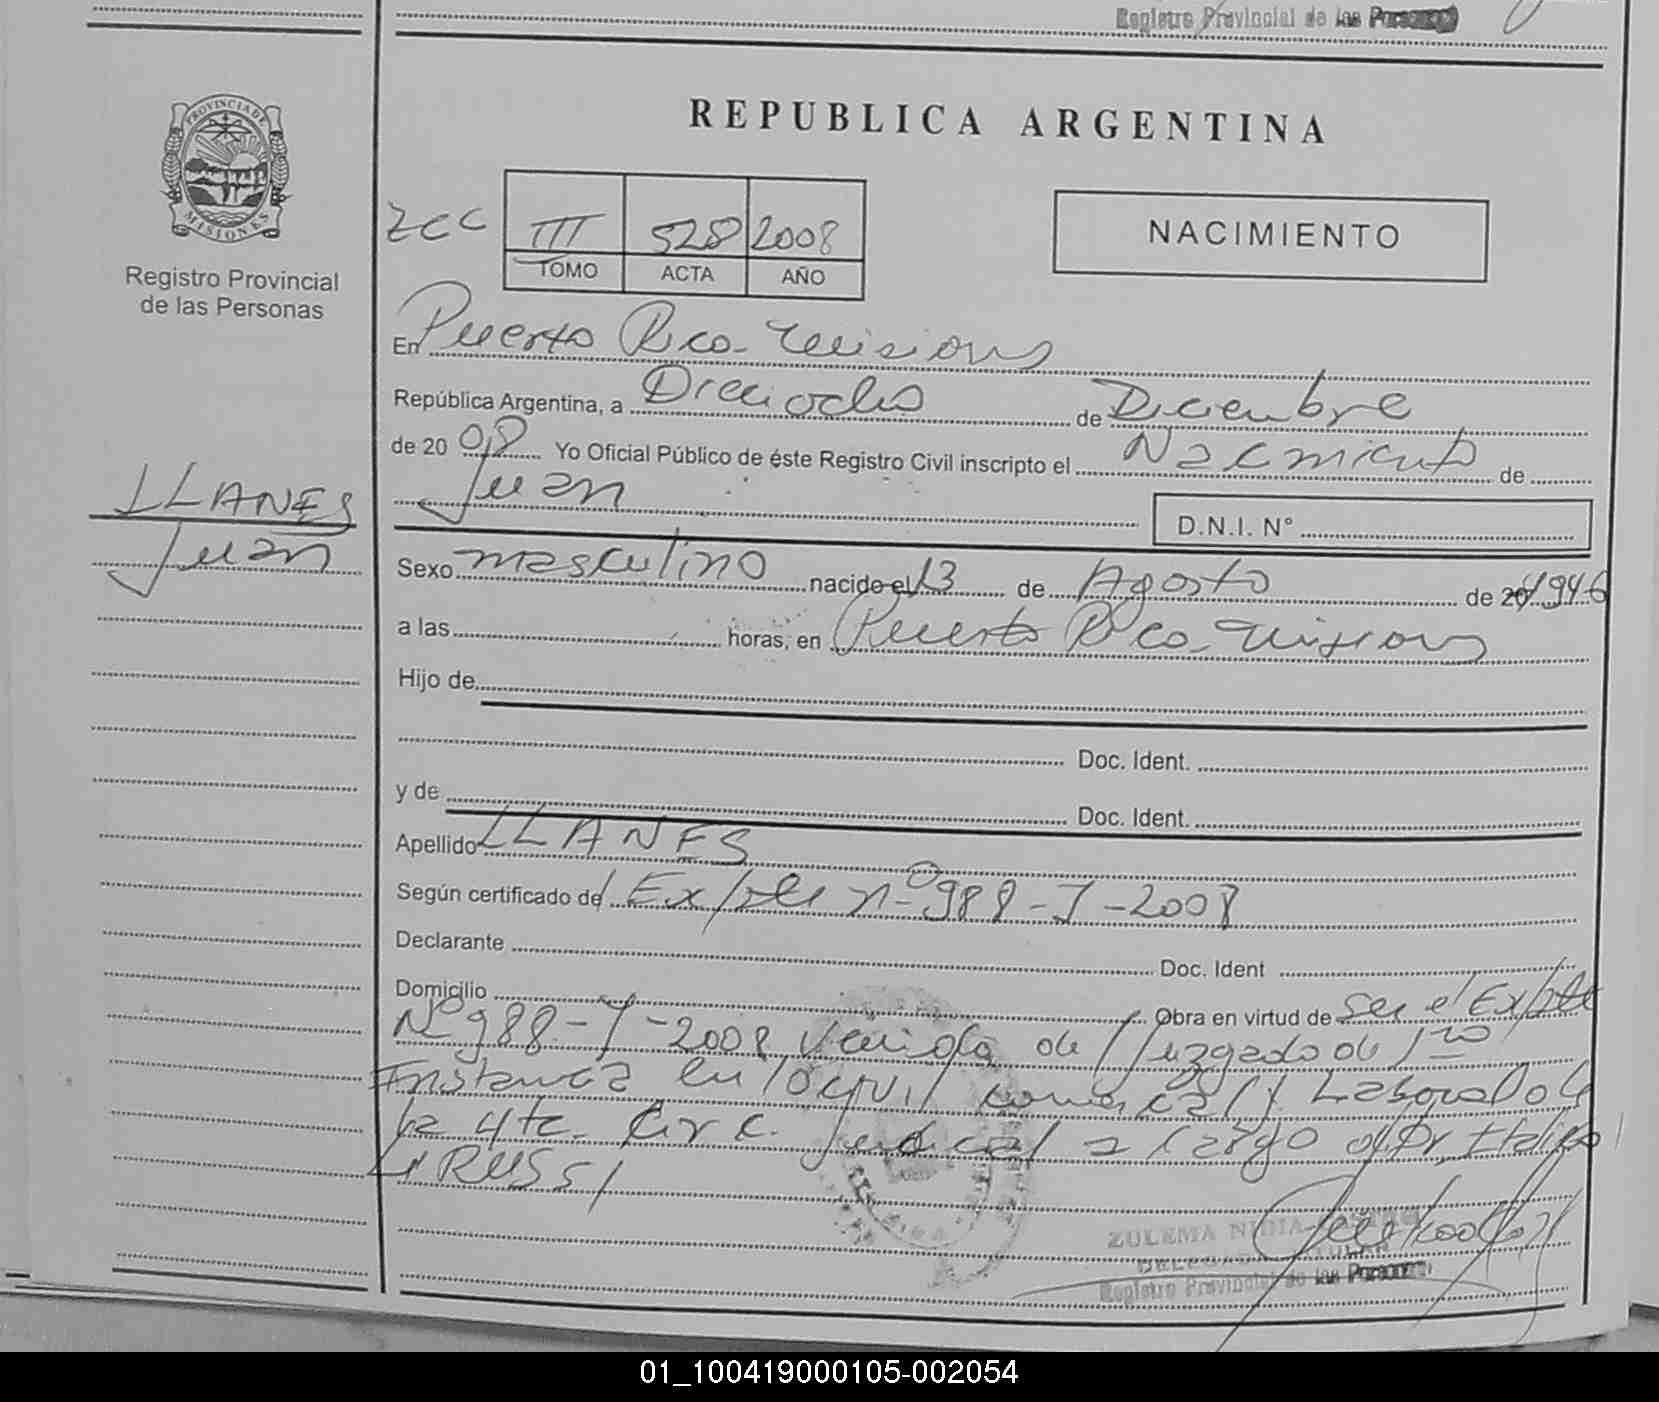 Registro Provincial de las Personas
PROVINCIA DE
MISIONES
Registro Provincial
de las Personas
REPUBLICA ARGENTINA
ZCC III 528 2008
TOMO ACTA AÑO
NACIMIENTO
En Puerto Rico - Misiones
República Argentina, a Dieciocho de Diciembre
de 2008 Yo Oficial Público de éste Registro Civil inscripto el Nacimiento de
Juan D.N.I. N°
LLANES
Juan
Sexo masculino nacido el 13 de Agosto de 20 1946
a las horas, en Puerto Rico - Misiones
Hijo de
Doc. Ident.
y de Doc. Ident.
Apellido LLANES
Según certificado de Expte nº 988-J-2008
Declarante Doc. Ident
Domicilio Obra en virtud de ser el Expte
Nº 988-J-2008 venido de Juzgado de 1ra
Instancia en lo Civil Comercial y Laboral de
la 4ta. Circ. Judicial a cargo del Dr,
ZULEMA NIDIA
DELEGADA TITULAR
Registro Provincial de las Personas
01_100419000105-002054